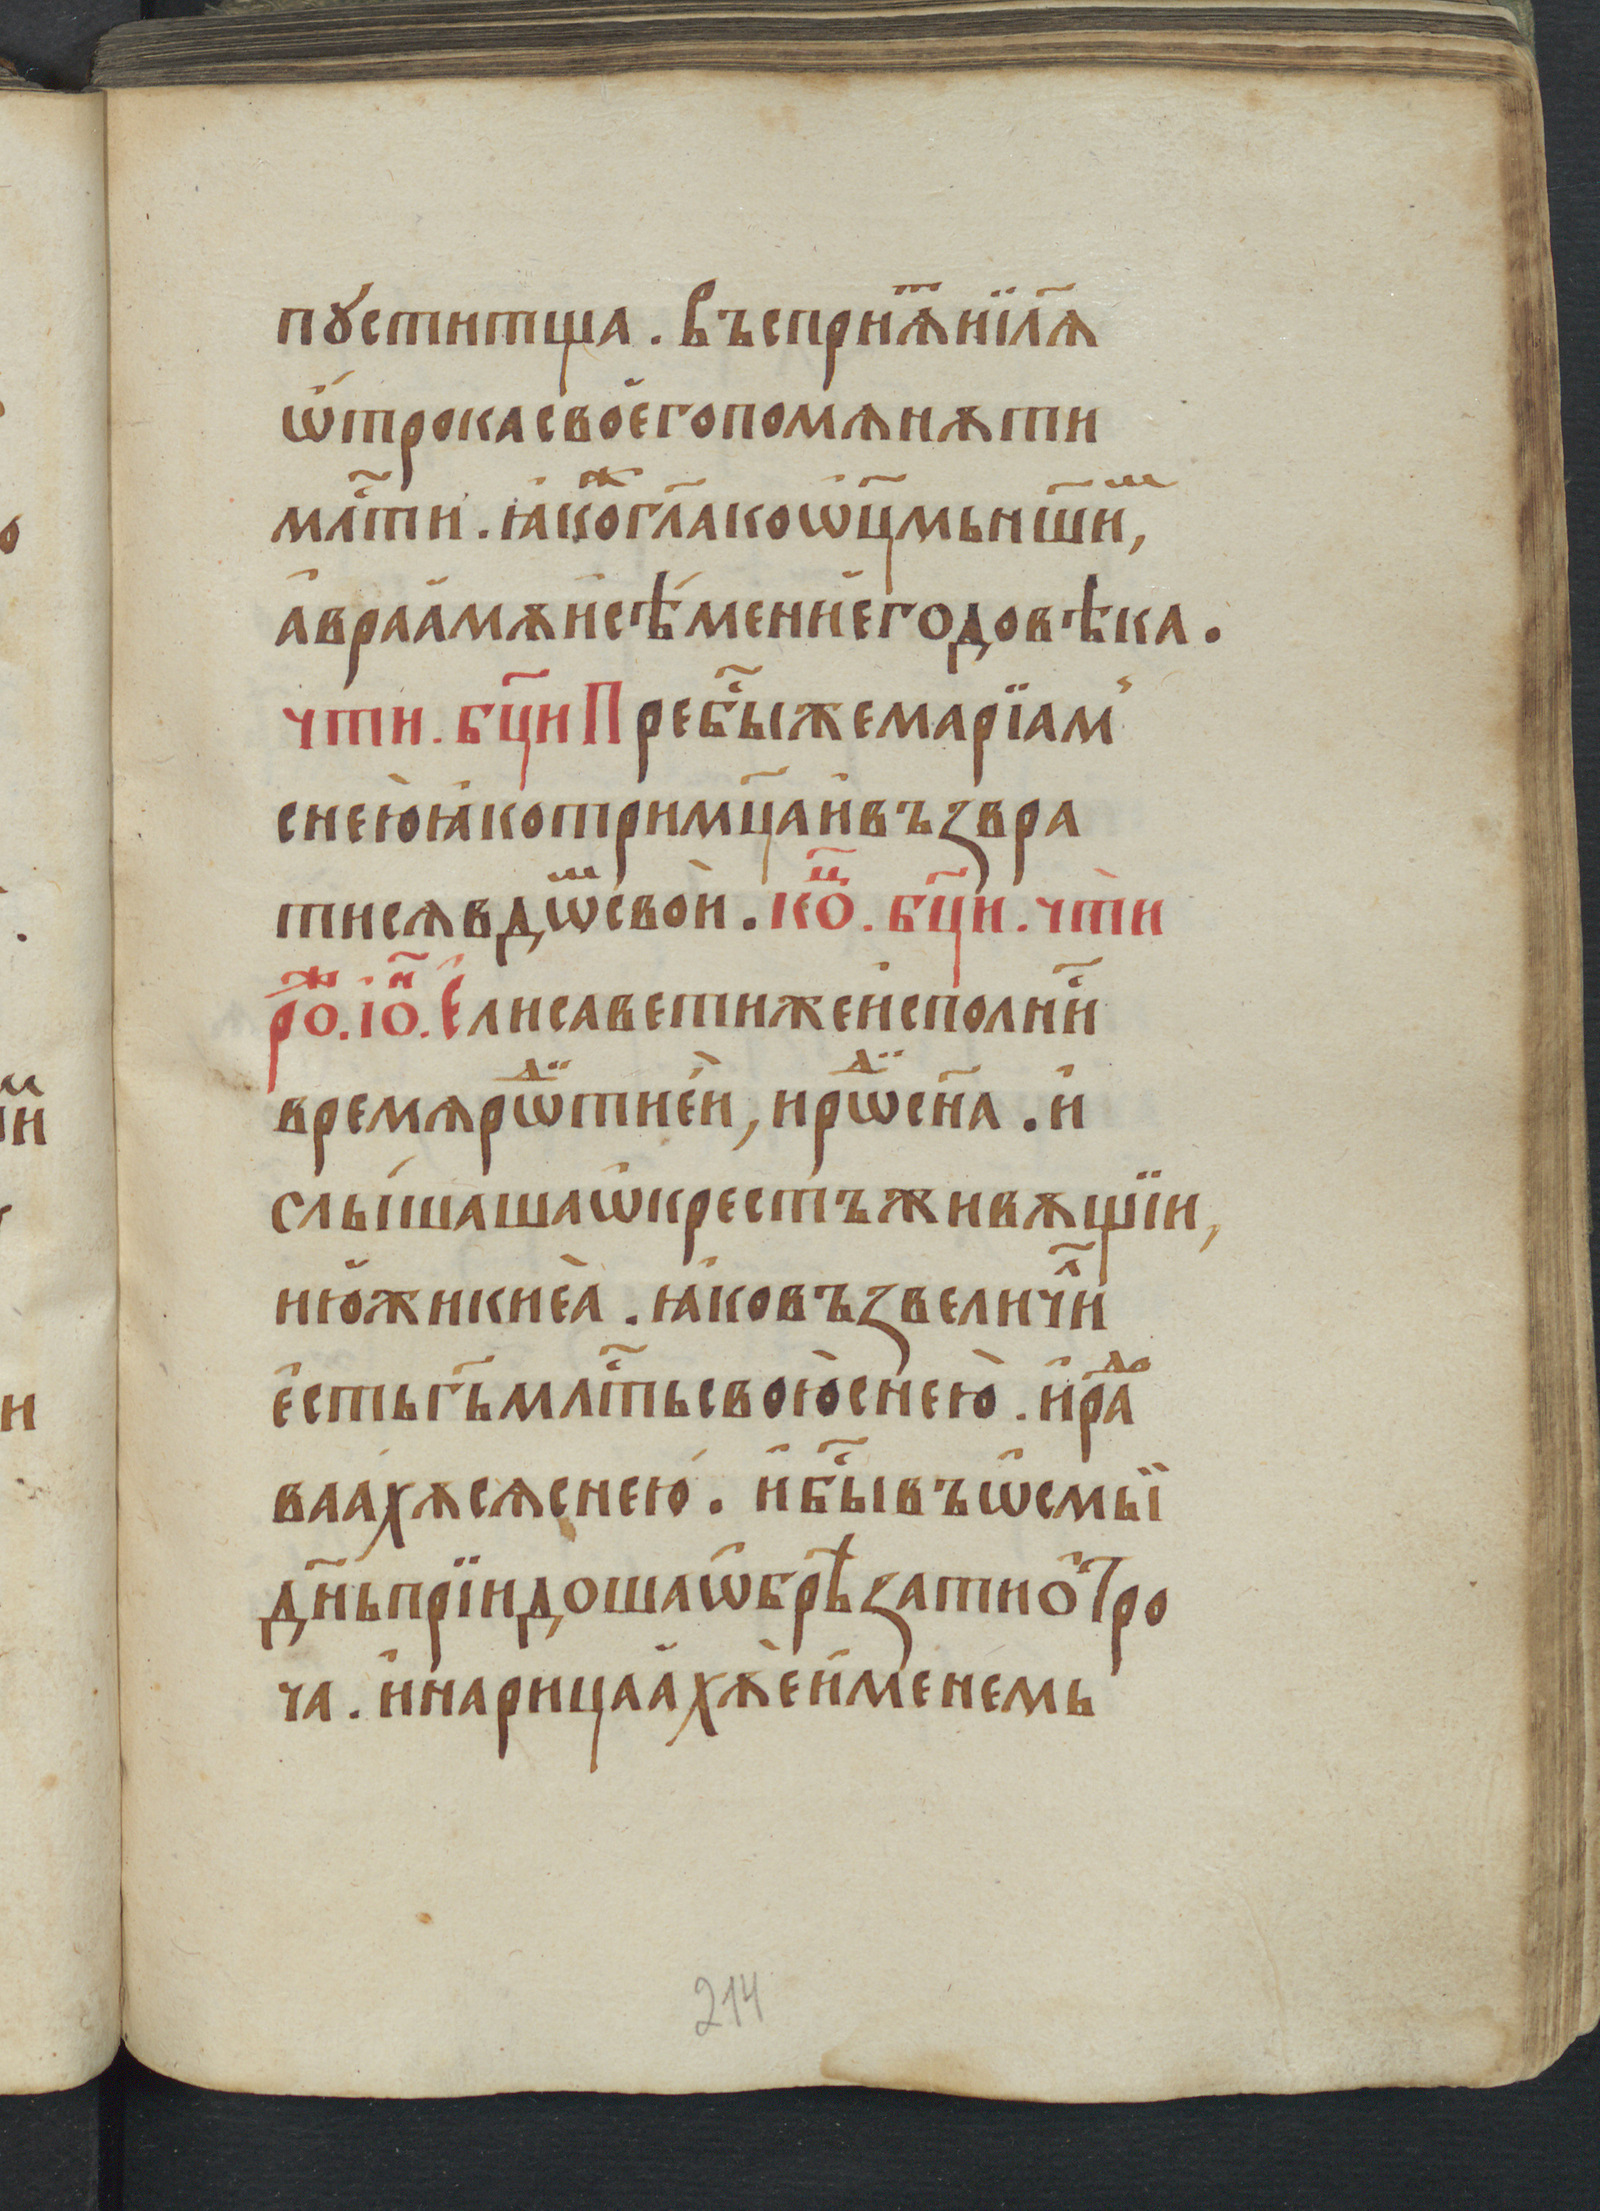 пꙋститща . Въспрїѧⷮ нїл҃ѧ
ѡ҆́трокасвоегопомѧнѫти
мл҃ти . ꙗ҆коⷤгл҃акоѡц҃мьнаши,
а҆враамѫисѣ́мениегодовѣка .
чти . бц҃и Пребы҃жемарїам'
снею̀ꙗкотримц҃аивъꙁвра
тисѧвдѡⷨсвои . коⷰ҇ . бц҃и . чти
роⷤ . іоⷩ҇ . Елисаветижеисполни҃
времѧрѡⷣтиеи, ирѡⷣсн҃а . и
слы́шашаѡ҆крестъживѫщїи,
июжикиеа . ꙗковъꙁвеличиⷧ҇
е҆стьгь҃мл҃тьсвою̀снею̀ . и҆раⷣ
ваахѫсѧснею . ибы҃въѡсмыї
дн҃ьпрїидошаѡ҆брѣꙁатио҆тро
ча . инарицаахѫ̀еименемь
214